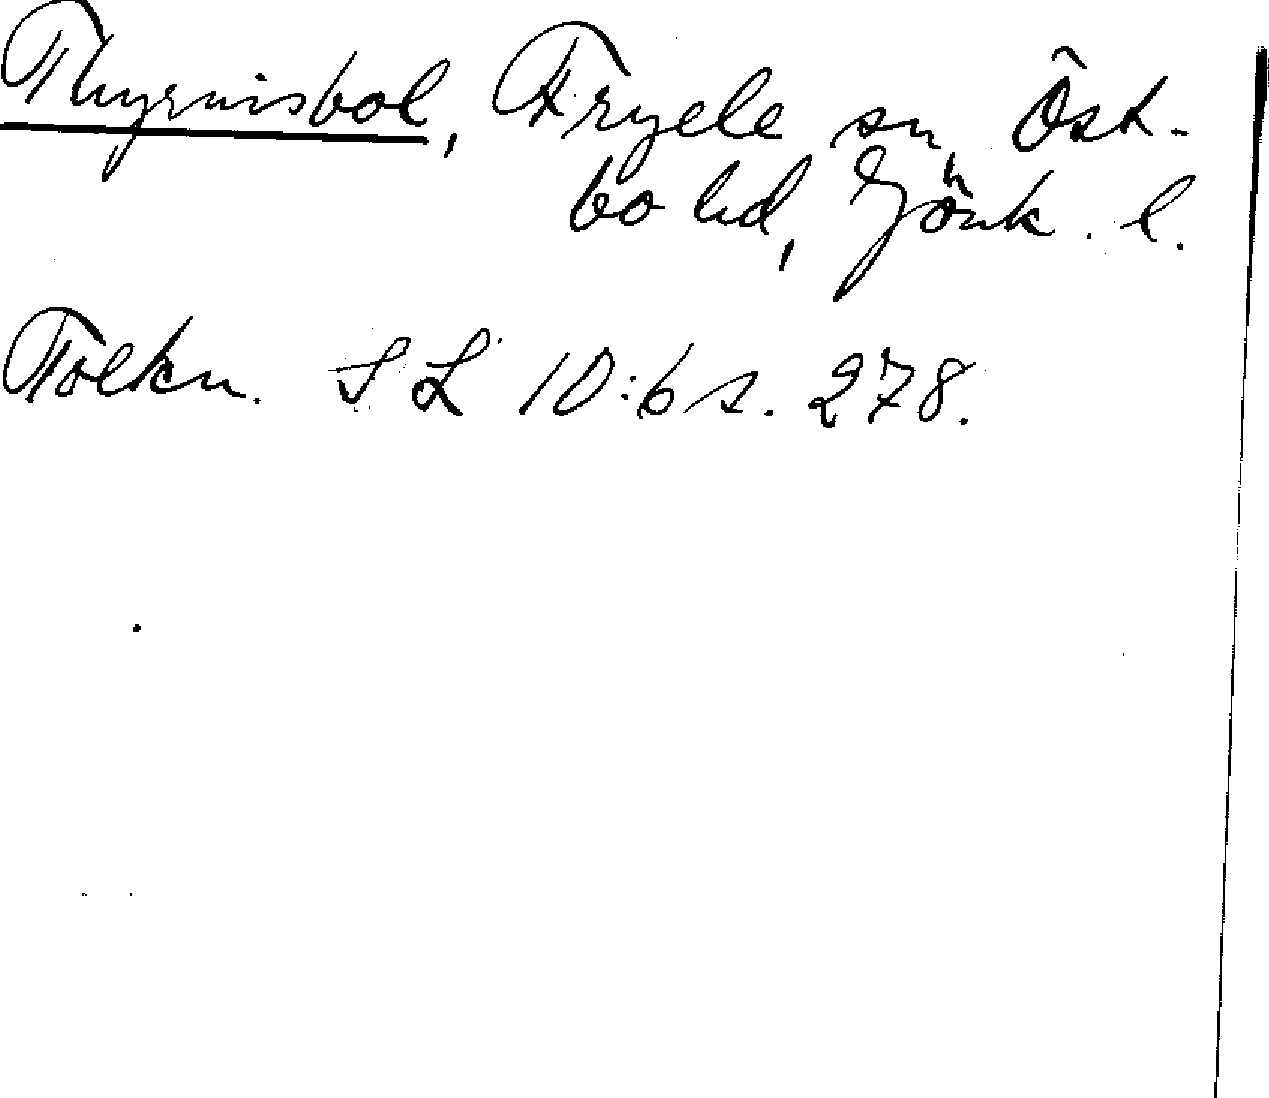 Thyrnisbol, Fryele sn Öst-
bo hd, Jönk. l.
Folkn. SL 10:6 s. 278.